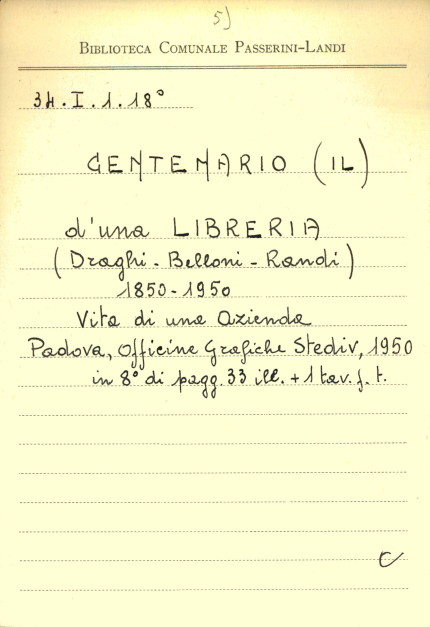 5)
BIBLIOTECA COMUNALE PASSERINI-LANDI
34.I.1.18°
CENTENARIO (IL)
d'una LIBRERIA
(Draghi - Belloni - Randi)
1850-1950
Vita di una azienda
Padova, Officine Grafiche Stediv, 1950
in 8° di pagg. 33 ill. + 1 tav. f. t.
C